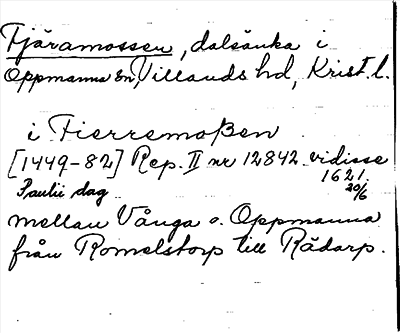 Tjäramossen, dalsänka i
Oppmanna sn, Villands hd, Krist. l.
i Fierremoßen
[1449-82] Rep. II nr 12842 vidisse
1621
Paulii dag 20/6
mellan Vånga o. Oppmanna
från Romelstorp till Rådarp.